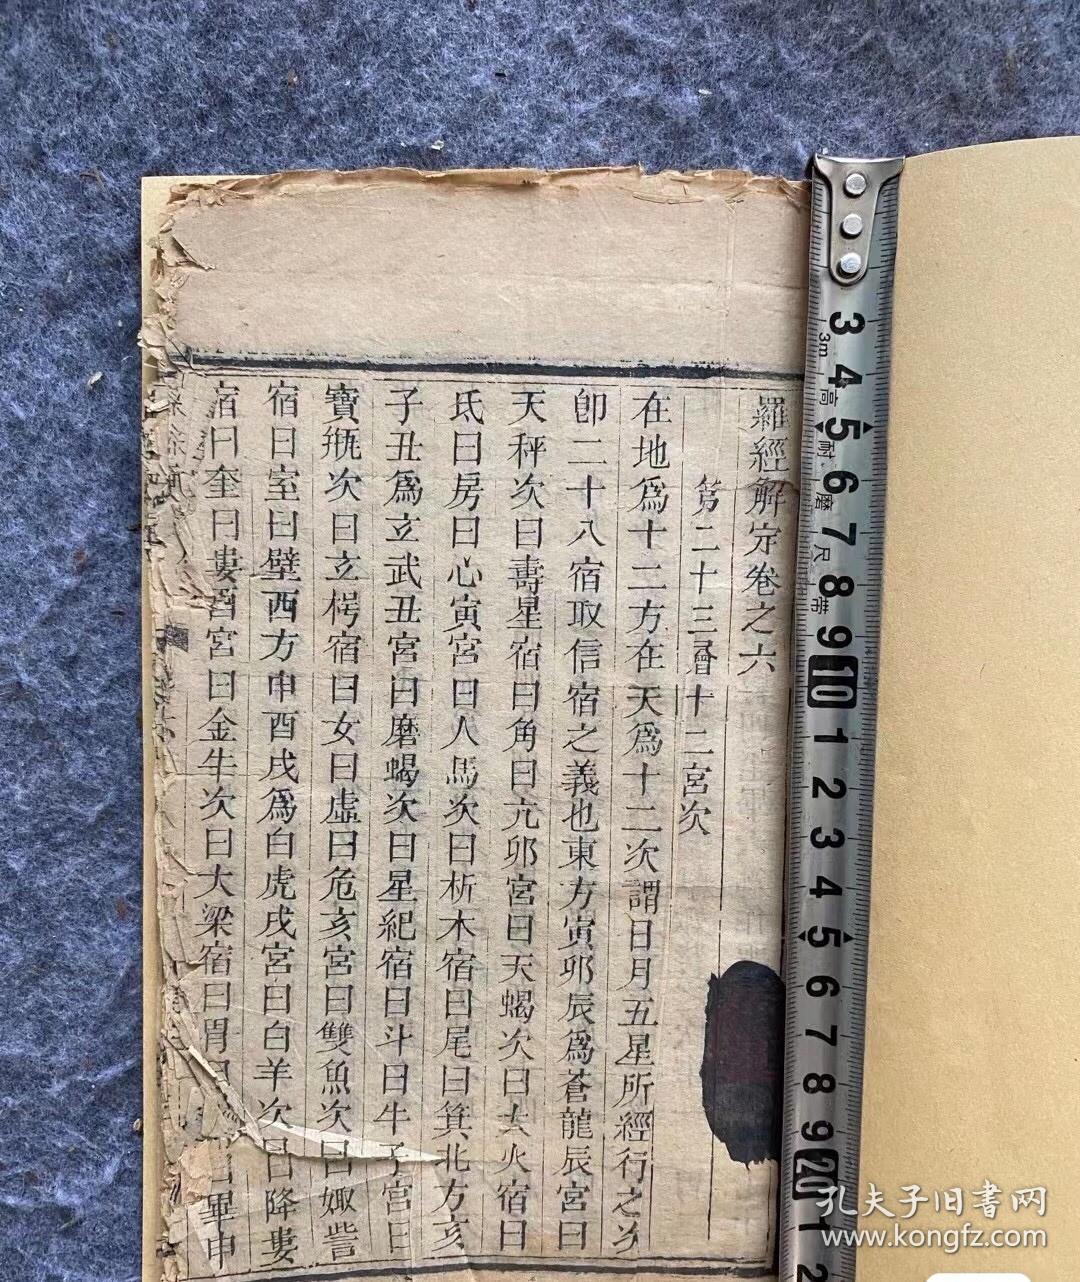 羅經解定卷之六
第二十三層十二宮次
在地爲十二方在天爲十二次謂日月五星所經行之次
卽二十八宿取信宿之義也東方寅卯辰爲蒼龍辰宮曰
天秤次曰壽星宿曰角曰亢卯宮曰天蝎次曰大火宿曰
氐曰房曰心寅宮曰人馬次曰析木宿曰尾曰箕北方亥
子丑爲玄武丑宮曰磨蝎次曰星紀宿曰斗曰牛子宮曰
寶瓶次曰玄枵宿曰女曰虛曰危亥宮曰雙魚次曰娵訾
宿曰室曰壁西方申酉戌爲白虎戌宮曰白羊次曰降婁
宿曰奎曰婁酉宮曰金牛次曰大梁宿曰胃曰畢申
3 4 5 6 7 8 9 10 1 2 3 4 5 6 7 8 9 20 1 2
3m 高耐磨尺帶
孔夫子旧书网
www.kongfz.com